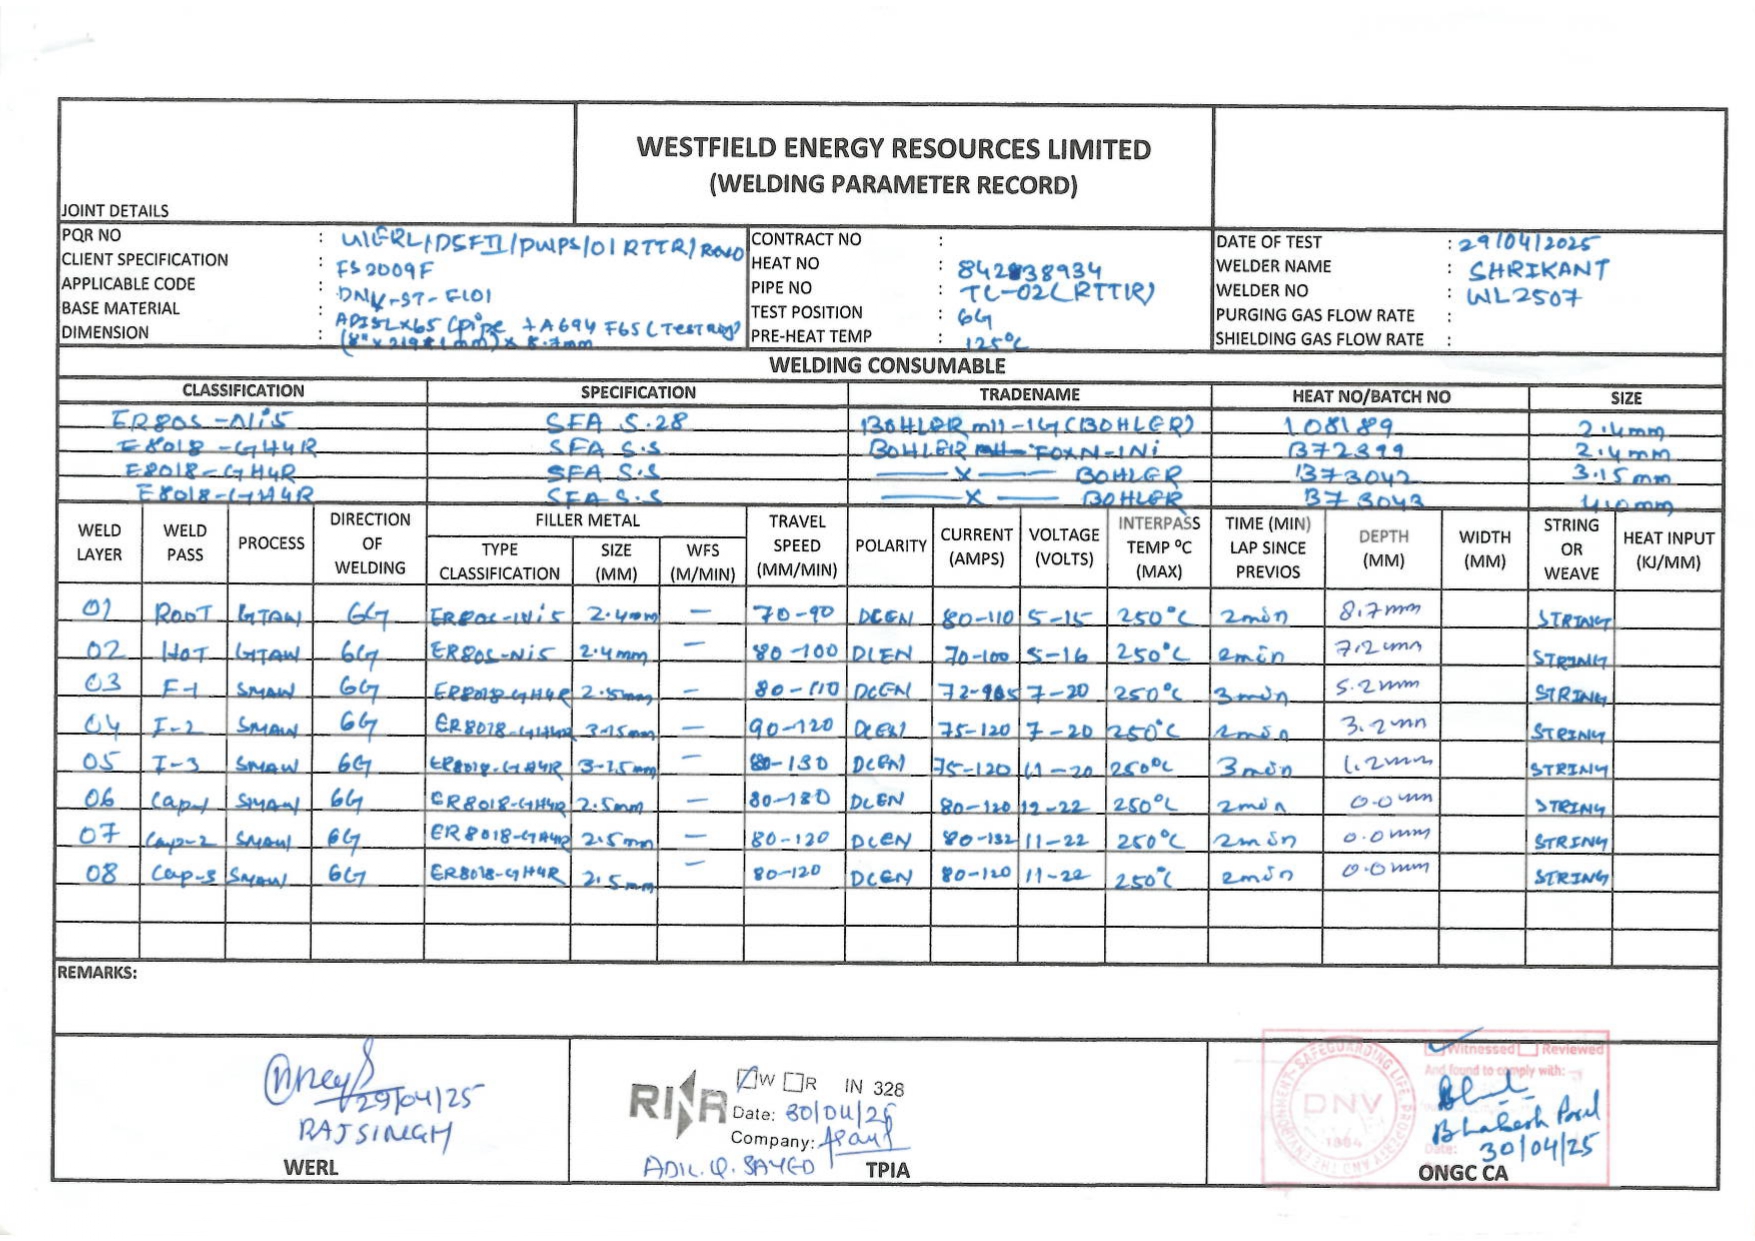 WESTFIELD ENERGY RESOURCES LIMITED
(WELDING PARAMETER RECORD)
JOINT DETAILS
PQR NO : WERL/DSFII/PWPS/01 RTTR/Rev0
CLIENT SPECIFICATION : FS2009F
APPLICABLE CODE : DNV-ST-F101
BASE MATERIAL : API5LX65 (pipe + A694 F65 (Test Ring)
DIMENSION : (8" x 219.1mm) x 8.7mm
CONTRACT NO :
HEAT NO : 842838934
PIPE NO : TC-02 (RTTR)
TEST POSITION : 6G
PRE-HEAT TEMP : 125°C
DATE OF TEST : 29/04/2025
WELDER NAME : SHRIKANT
WELDER NO : WL2507
PURGING GAS FLOW RATE :
SHIELDING GAS FLOW RATE :
WELDING CONSUMABLE
CLASSIFICATION SPECIFICATION TRADENAME HEAT NO/BATCH NO SIZE
ER80S-Ni5 SFA 5.28 BOHLER m11-1G (BOHLER) 108189 2.4mm
E8018-GH4R SFA 5.5 BOHLER FOXN-1Ni B72399 2.4mm
E8018-GH4R SFA 5.5 —x— BOHLER B73042 3.15mm
E8018-GH4R SFA 5.5 —x— BOHLER B73043 4.0mm
WELD LAYER WELD PASS PROCESS DIRECTION OF WELDING FILLER METAL TYPE CLASSIFICATION SIZE (MM) WFS (M/MIN) TRAVEL SPEED (MM/MIN) POLARITY CURRENT (AMPS) VOLTAGE (VOLTS) INTERPASS TEMP °C (MAX) TIME (MIN) LAP SINCE PREVIOS DEPTH (MM) WIDTH (MM) STRING OR WEAVE HEAT INPUT (KJ/MM)
01 ROOT GTAW 6G ER80S-Ni5 2.4mm — 70-90 DCEN 80-110 5-15 250°C 2min 8.7mm STRING
02 HOT GTAW 6G ER80S-Ni5 2.4mm — 80-100 DCEN 70-100 5-16 250°C 2min 7.2mm STRING
03 F-1 SMAW 6G ER8018-GH4R 2.5mm — 80-110 DCEN 72-105 7-20 250°C 3min 5.2mm STRING
04 F-2 SMAW 6G ER8018-GH4R 3.15mm — 90-120 DCEN 75-120 7-20 250°C 2min 3.2mm STRING
05 F-3 SMAW 6G ER8018-GH4R 3.15mm — 80-130 DCEN 75-120 11-20 250°C 3min 1.2mm STRING
06 Cap-1 SMAW 6G ER8018-GH4R 2.5mm — 80-130 DCEN 80-120 12-22 250°C 2min 0.0mm STRING
07 Cap-2 SMAW 6G ER8018-GH4R 2.5mm — 80-120 DCEN 80-132 11-22 250°C 2min 0.0mm STRING
08 Cap-3 SMAW 6G ER8018-GH4R 2.5mm — 80-120 DCEN 80-120 11-22 250°C 2min 0.0mm STRING
REMARKS:
29/04/25
RAJSINGH
WERL
RINA W R IN 328
Date: 30/04/25
Company:
ADIL Q. SAYED TPIA
Witnessed Reviewed
And found to comply with:
DNV
1864
Date: 30/04/25
ONGC CA